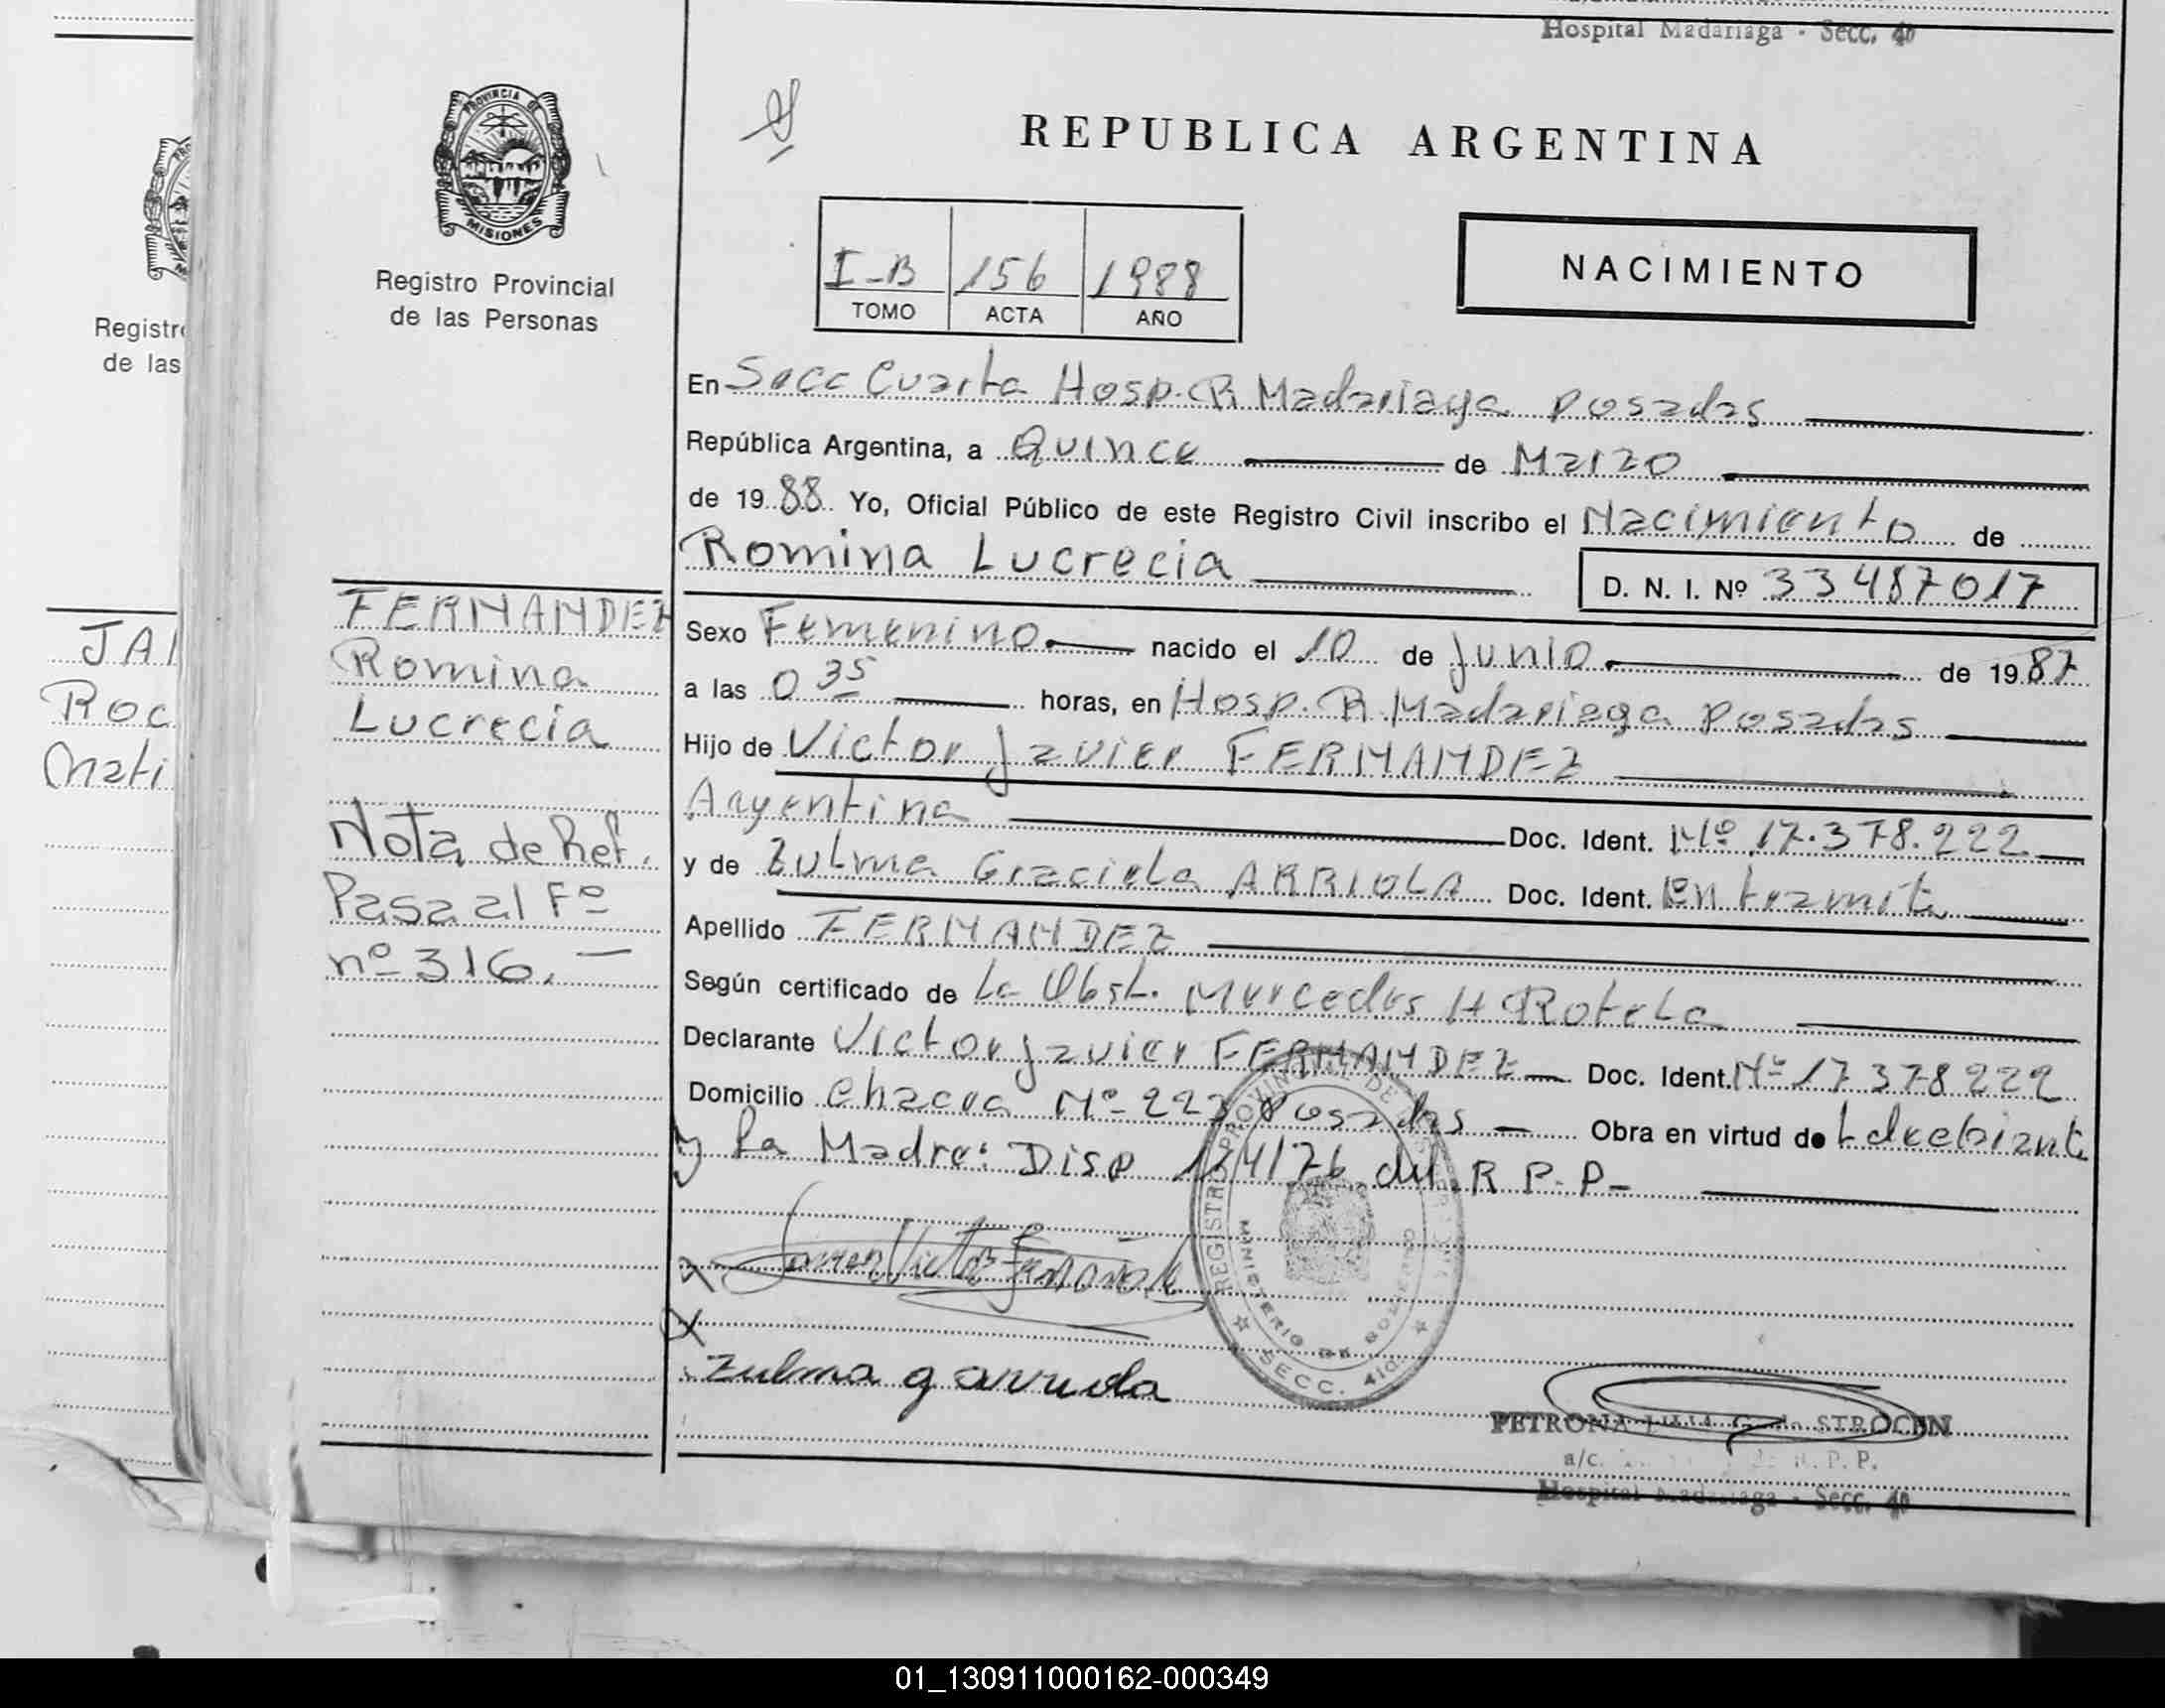 Hospital Madariaga - Secc. 4º
PROVINCIA DE
MISIONES
Registro Provincial
de las Personas
Registro
de las
JAI
Roc
Mati
FERNANDEZ
Romina
Lucrecia
Nota de Ref.
Pasa al Fº
nº 316. —
REPUBLICA ARGENTINA
I-B 156 1988
TOMO ACTA AÑO
NACIMIENTO
En Secc Cuarta Hosp. R Madariaga Posadas
República Argentina, a Quince de Marzo
de 1988 Yo, Oficial Público de este Registro Civil inscribo el Nacimiento de
Romina Lucrecia
D. N. I. Nº 33487017
Sexo Femenino. nacido el 10 de Junio de 1987
a las 0 35 horas, en Hosp. R. Madariaga Posadas
Hijo de Victor Javier FERNANDEZ
Argentina Doc. Ident. Nº 17.378.222
y de Zulma Graciela ARRIOLA Doc. Ident. En tramite
Apellido FERNANDEZ
Según certificado de La Obst. Mercedes H Rotela
Declarante Victor Javier FERNANDEZ Doc. Ident. Nº 17 378222
Domicilio Chacra Nº 223 Posadas Obra en virtud de
y La Madre: Disp 124/76 del R P. P.
REGISTRO PROVINCIAL DE
MINISTERIO DE GOBIERNO
SECC. 4ta
Javier Victor Fernandez
Zulma g arriola
PETRONA STROCEN
a/c. R. P. P.
Hospital Madariaga - Secc. 4º
01_130911000162-000349